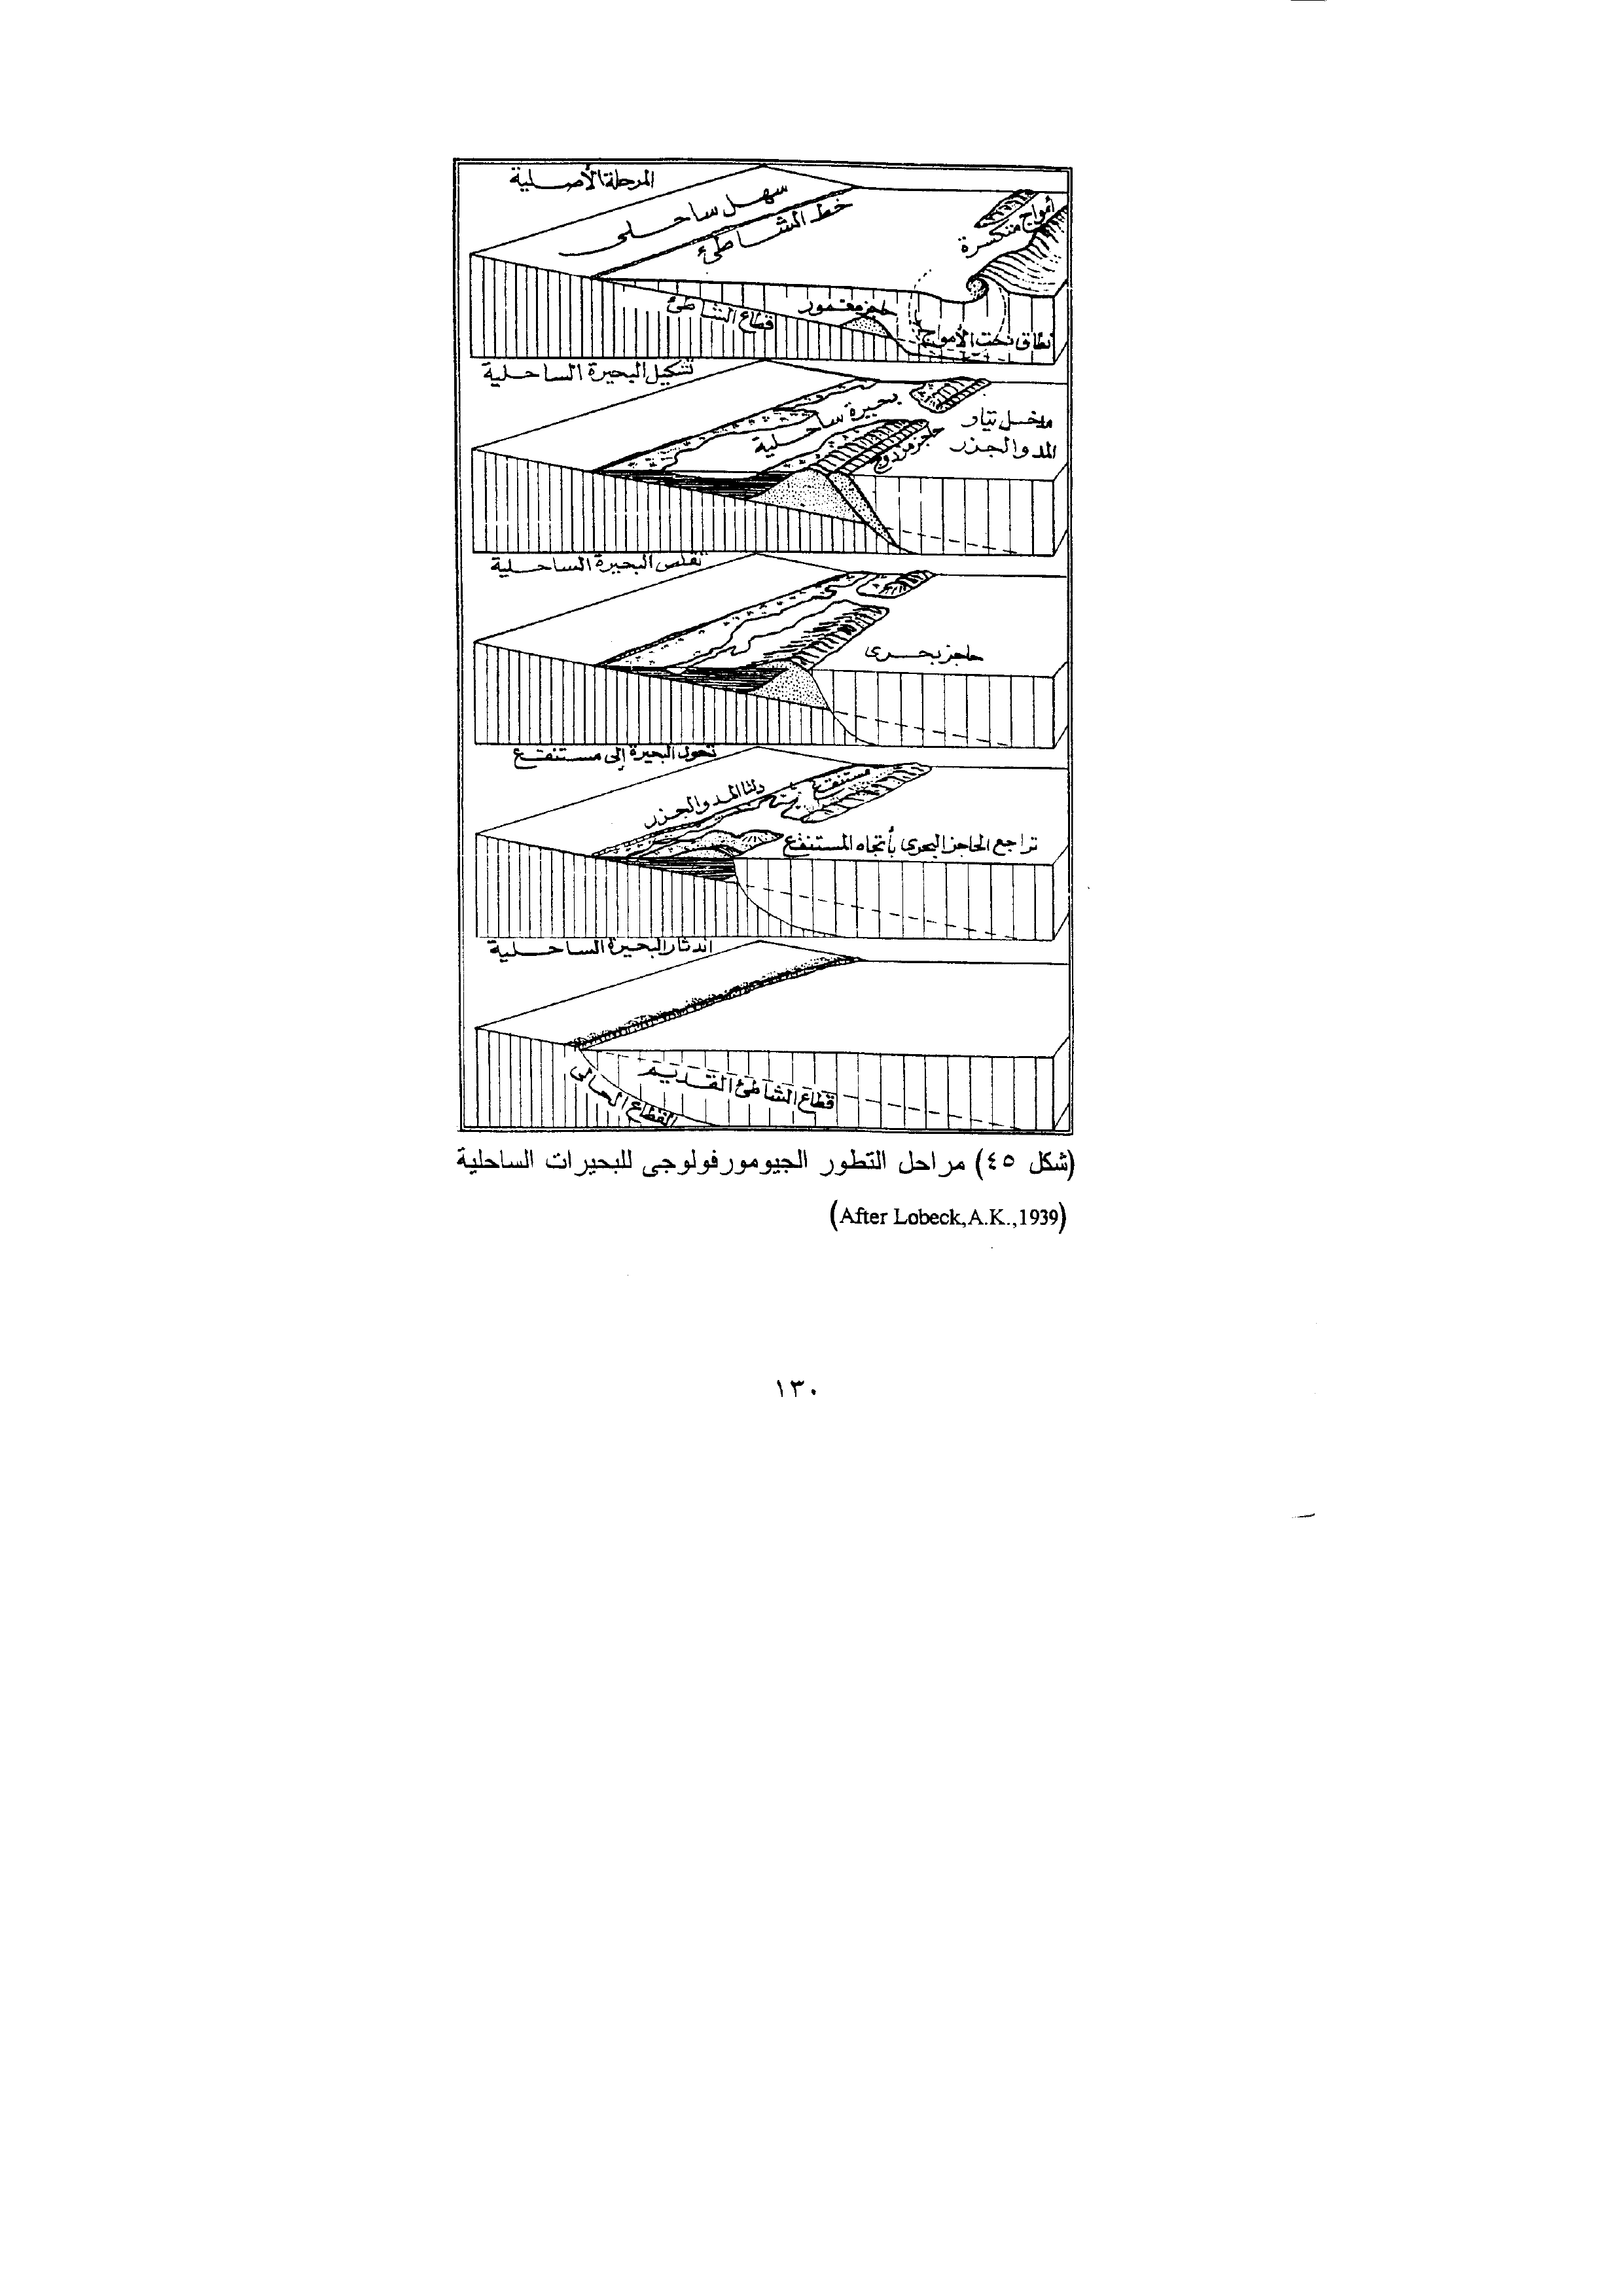 المرحلة الأصلية
سهل ساحلى
خط الشاطئ
أمواج منكسرة
قطاع الشاطئ
حاجز مغمور
نطاق نحت الأمواج
تشكيل البحيرة الساحلية
بحيرة ساحلية
حاجز مزدوج
مدخل تيار
المد والجزر
تقلص البحيرة الساحلية
حاجز بحرى
تحول البحيرة إلى مستنقع
دلتا المد والجزر
مستنقع
تراجع الحاجز البحرى بأتجاه المستنقع
اندثار البحيرة الساحلية
قطاع الشاطئ القديم
القطاع الحالى
(شكل ٤٥) مراحل التطور الجيومورفولوجى للبحيرات الساحلية
(After Lobeck,A.K.,1939)
١٣٠